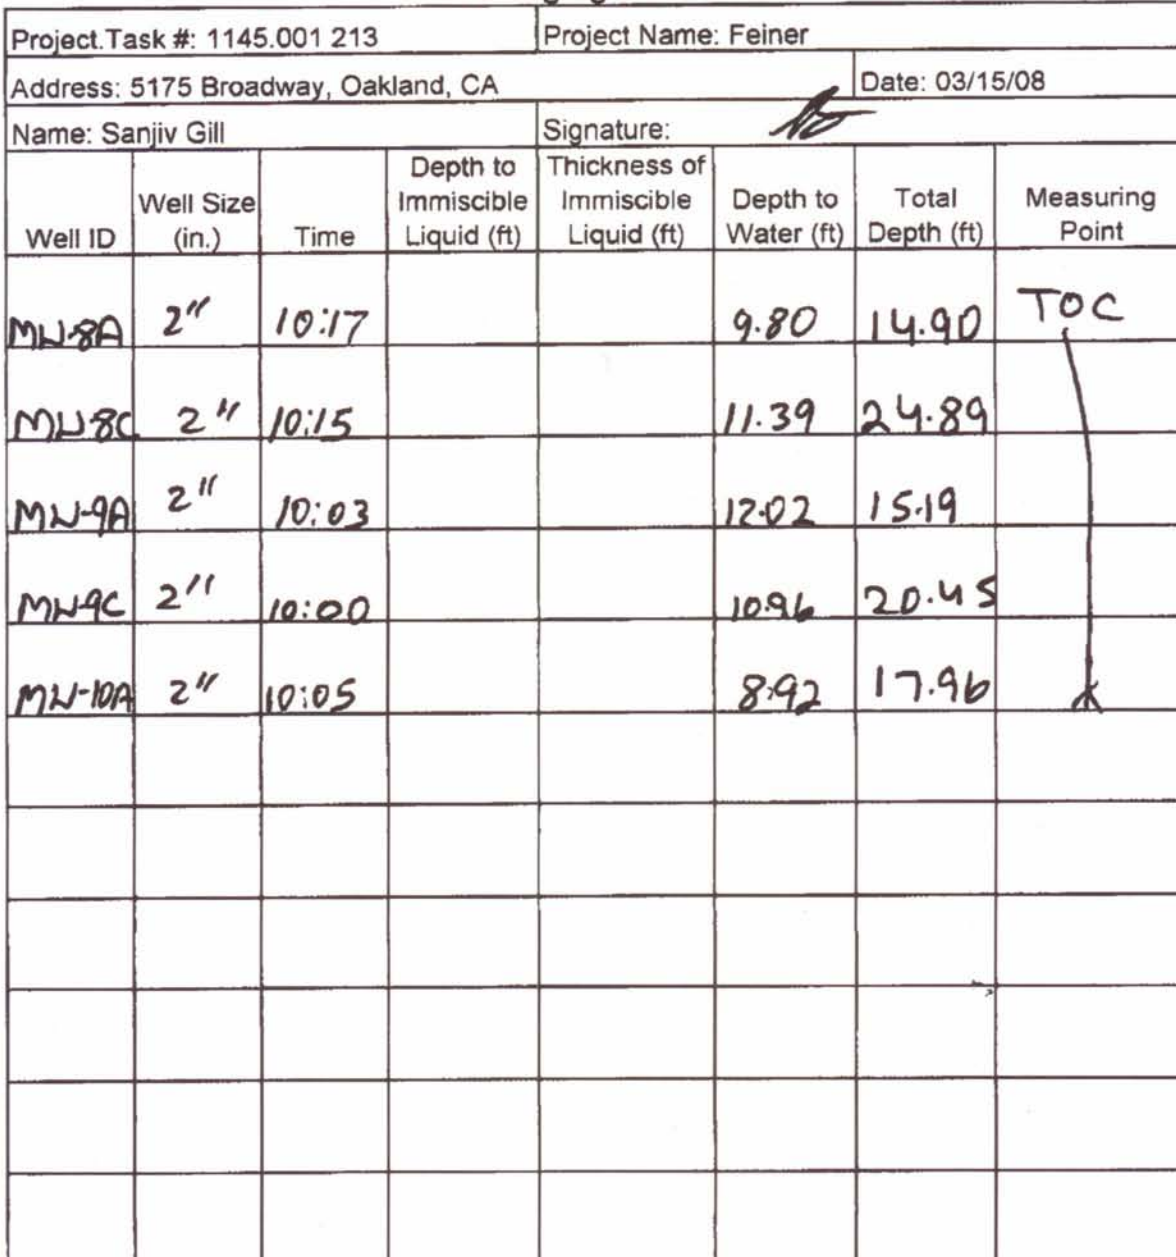 Project.Task #: 1145.001 213 Project Name: Feiner
Address: 5175 Broadway, Oakland, CA Date: 03/15/08
Name: Sanjiv Gill Signature:
Well ID Well Size (in.) Time Depth to Immiscible Liquid (ft) Thickness of Immiscible Liquid (ft) Depth to Water (ft) Total Depth (ft) Measuring Point
MW-8A 2" 10:17 9.80 14.90 TOC
MW-8C 2" 10:15 11.39 24.89
MW-9A 2" 10:03 12.02 15.19
MW-9C 2" 10:00 10.96 20.45
MW-10A 2" 10:05 8.92 17.96